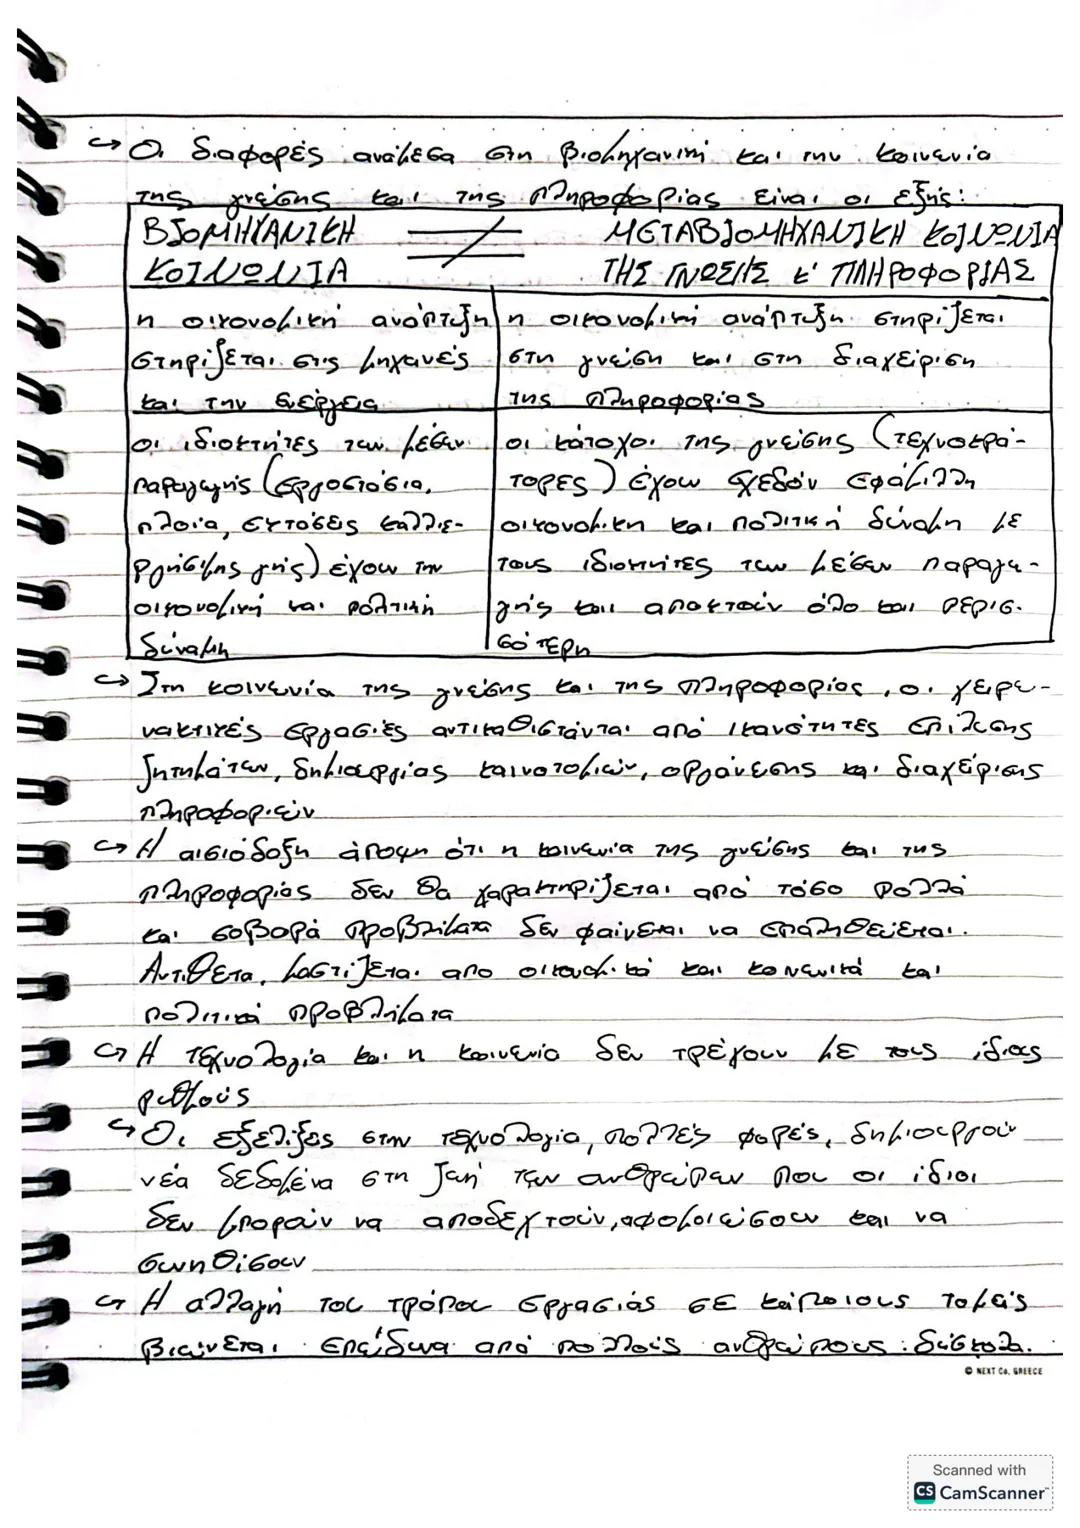 ↪ Οι διαφορές ανάμεσα στη βιομηχανική και την κοινωνία
της γνώσης και της πληροφορίας είναι οι εξής:
ΒΙΟΜΗΧΑΝΙΚΗ ≠ ΜΕΤΑΒΙΟΜΗΧΑΝΙΚΗ ΚΟΙΝΩΝΙΑ
ΚΟΙΝΩΝΙΑ ΤΗΣ ΓΝΩΣΗΣ κ' ΠΛΗΡΟΦΟΡΙΑΣ
η οικονομική ανάπτυξη
στηρίζεται στις μηχανές
και την ενέργεια
η οικονομική ανάπτυξη στηρίζεται
στη γνώση και στη διαχείριση
της πληροφορίας
οι ιδιοκτήτες των μέσων
παραγωγής (εργοστάσια,
πλοία, εκτάσεις καλλιε-
ργήσιμης γής) έχουν την
οικονομική και πολιτική
δύναμη
οι κάτοχοι της γνώσης (τεχνοκρά-
τορες) έχουν σχεδόν εφάμιλλη
οικονομικη και πολιτική δύναμη με
τους ιδιοκτήτες των μέσων παραγω-
γής και αποκτούν όλο και περισ-
σότερη
↪ Στη κοινωνία της γνώσης και της πληροφορίας, οι χειρω-
νακτικές εργασίες αντικαθιστάνται από ικανότητες επίλυσης
ζητημάτων, δημιουργίας καινοτομιών, οργάνωσης και διαχείρισης
πληροφοριών
↪ Η αισιόδοξη άποψη ότι η κοινωνία της γνώσης και της
πληροφορίας δεν θα χαρακτηρίζεται από τόσο πολλά
και σοβαρά προβλήματα δεν φαίνεται να επαληθεύεται.
Αντιθετα, μαστίζεται απο οικονομικά και κοινωνικά και
πολιτικά προβλήματα
↪ Η τεχνολογία και η κοινωνία δεν τρέχουν με τους ίδιους
ρυθμούς
↪ Οι εξελίξεις στην τεχνολογία, πολλές φορές, δημιουργούν
νέα δεδομένα στη ζωή των ανθρώπων που οι ίδιοι
δεν μπορούν να αποδεχτούν, αφομοιώσουν και να
συνηθίσουν
↪ Η αλλαγή του τρόπου εργασίας σε κάποιους τομείς
βιώνεται επώδυνα από πολλούς ανθρώπους: δύσκολα.
© NEXT Co. GREECE
Scanned with
CS CamScanner